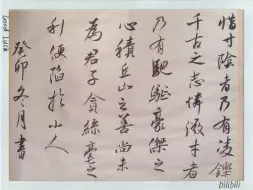 惜寸陰者乃有凌鑠
千古之志憐微才者
乃有馳驅豪傑之
心積丘山之善尚未
為君子貪絲毫之
利便陷於小人
癸卯冬月書
Good Luck
bilibili